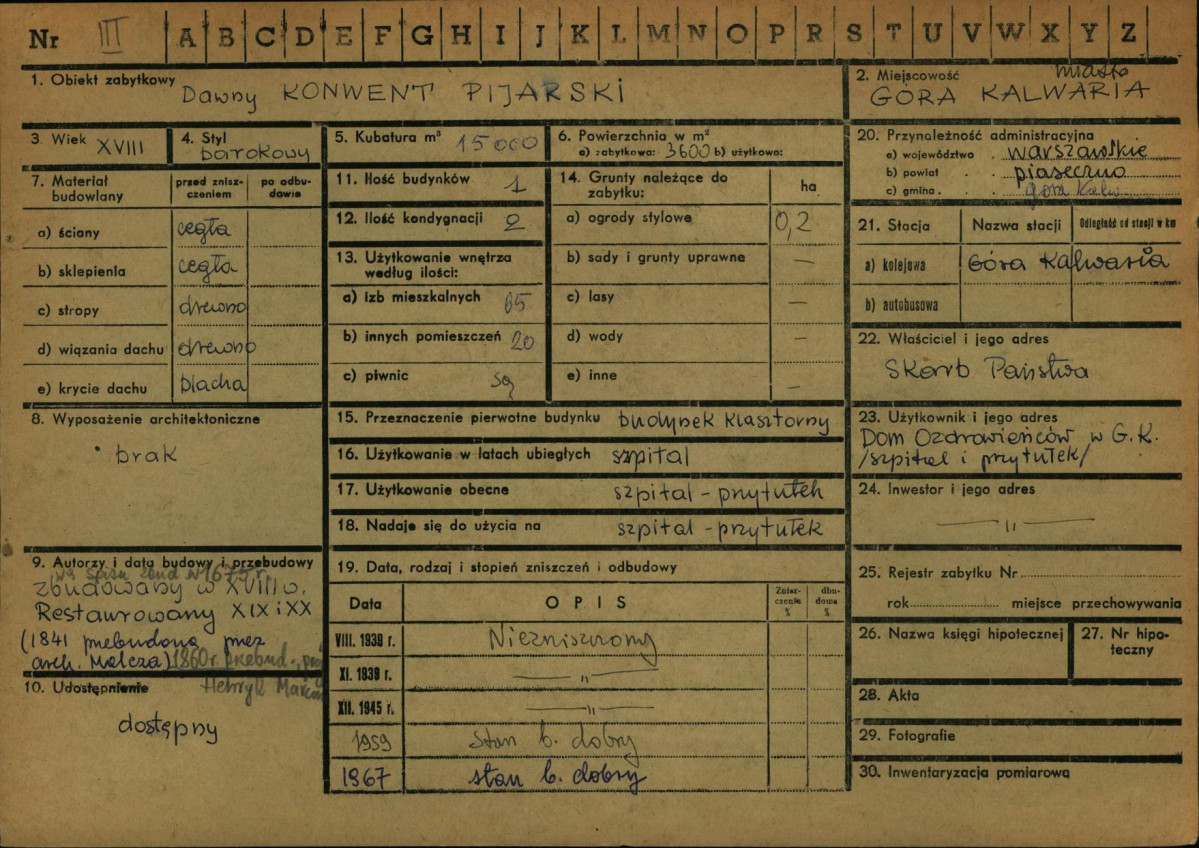 Nr III A B C D E F G H I J K L M N O P R S T U V W X Y Z
1. Obiekt zabytkowy Dawny KONWENT PIJARSKI
2. Miejscowość miasto
GÓRA KALWARIA
3. Wiek XVIII
4. Styl barokowy
5. Kubatura m³ 15 000
6. Powierzchnia w m²
a) zabytkowa: 3600 b) użytkowa:
20. Przynależność administracyjna
a) województwo warszawskie
b) powiat piaseczno
c) gmina góra kalw.
7. Materiał budowlany
przed zniszczeniem
po odbudowie
a) ściany cegła
b) sklepienia cegła
c) stropy drewno
d) wiązania dachu drewno
e) krycie dachu blacha
8. Wyposażenie architektoniczne
brak
9. Autorzy i data budowy i przebudowy
zbud w 1675 r.
zbudowany w XVIII w.
Restaurowany XIX i XX
(1841 przebudona przez
arch. Malcza) 1860 r. przebud.
Henryk
10. Udostępnienie
dostępny
11. Ilość budynków 1
12. Ilość kondygnacji 2
13. Użytkowanie wnętrza
według ilości:
a) izb mieszkalnych 65
b) innych pomieszczeń 20
c) piwnic są
14. Grunty należące do
zabytku:
ha
a) ogrody stylowe 0,2
b) sady i grunty uprawne —
c) lasy —
d) wody —
e) inne —
15. Przeznaczenie pierwotne budynku budynek klasztorny
16. Użytkowanie w latach ubiegłych szpital
17. Użytkowanie obecne szpital - przytułek
18. Nadaje się do użycia na szpital - przytułek
19. Data, rodzaj i stopień zniszczeń i odbudowy
Data OPIS Zniszczenia % dbudowa %
VIII. 1939 r. Niezniszczony
XI. 1939 r. — " —
XII. 1945 r. — " —
1959 Stan b. dobry
1967 stan b. dobry
21. Stacja Nazwa stacji Odległość od stacji w km
a) kolejowa Góra Kalwaria
b) autobusowa
22. Właściciel i jego adres
Skarb Państwa
23. Użytkownik i jego adres
Dom Ozdrowieńców w G.K.
/szpital i przytułek/
24. Inwestor i jego adres
— " —
25. Rejestr zabytku Nr
rok miejsce przechowywania
26. Nazwa księgi hipotecznej
27. Nr hipoteczny
28. Akta
29. Fotografie
30. Inwentaryzacja pomiarowa